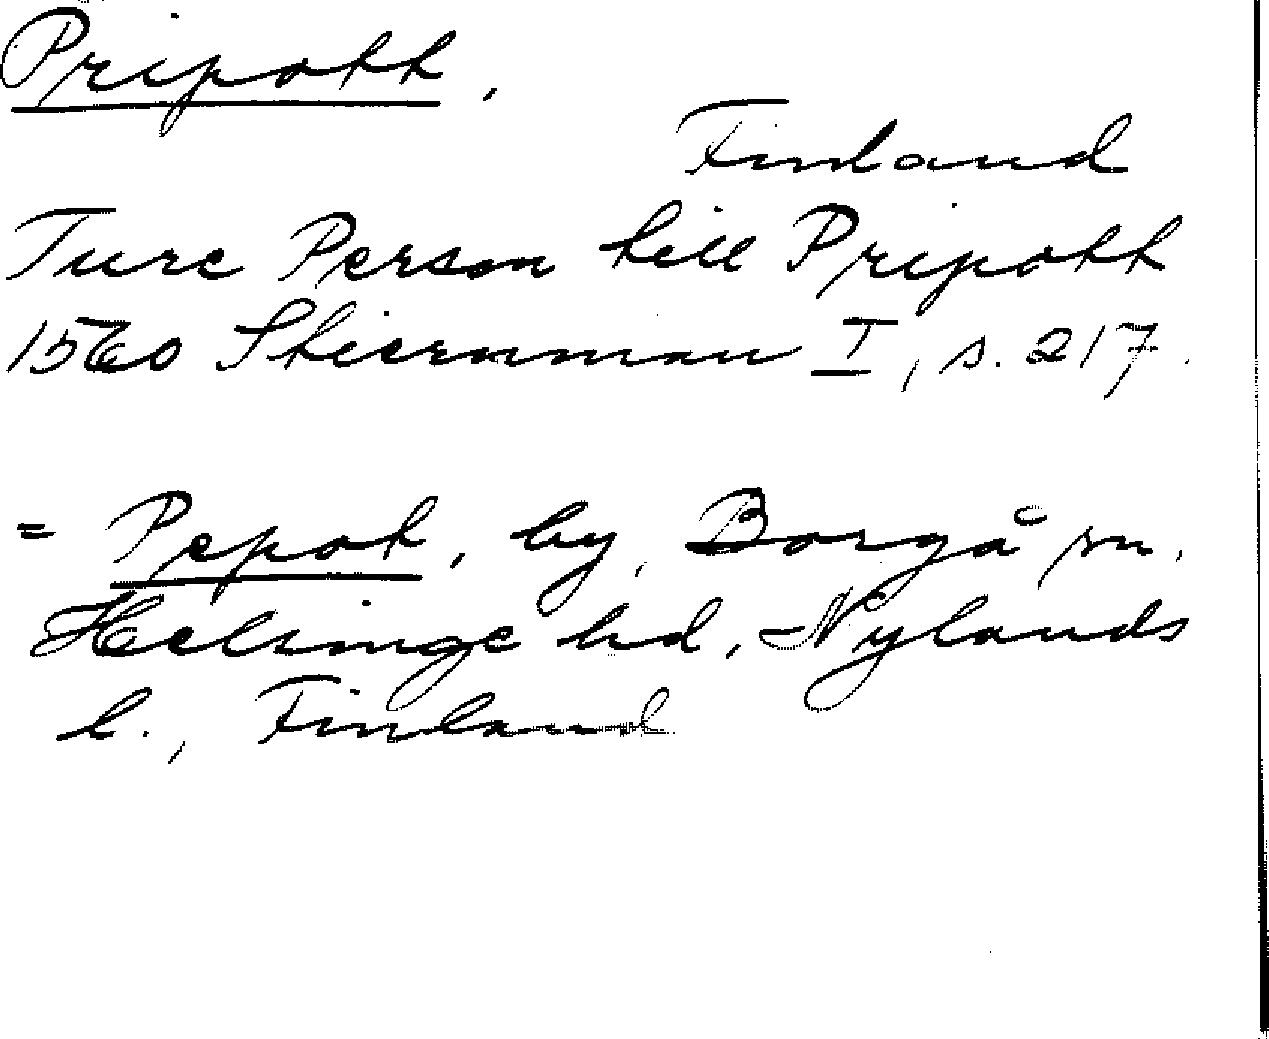 Pripott,
Finland
Ture Person till Pripott
1560 Stiernman I, s. 217.
= Pepot, by, Borgå sn,
Helsinge hd, Nylands
l., Finland